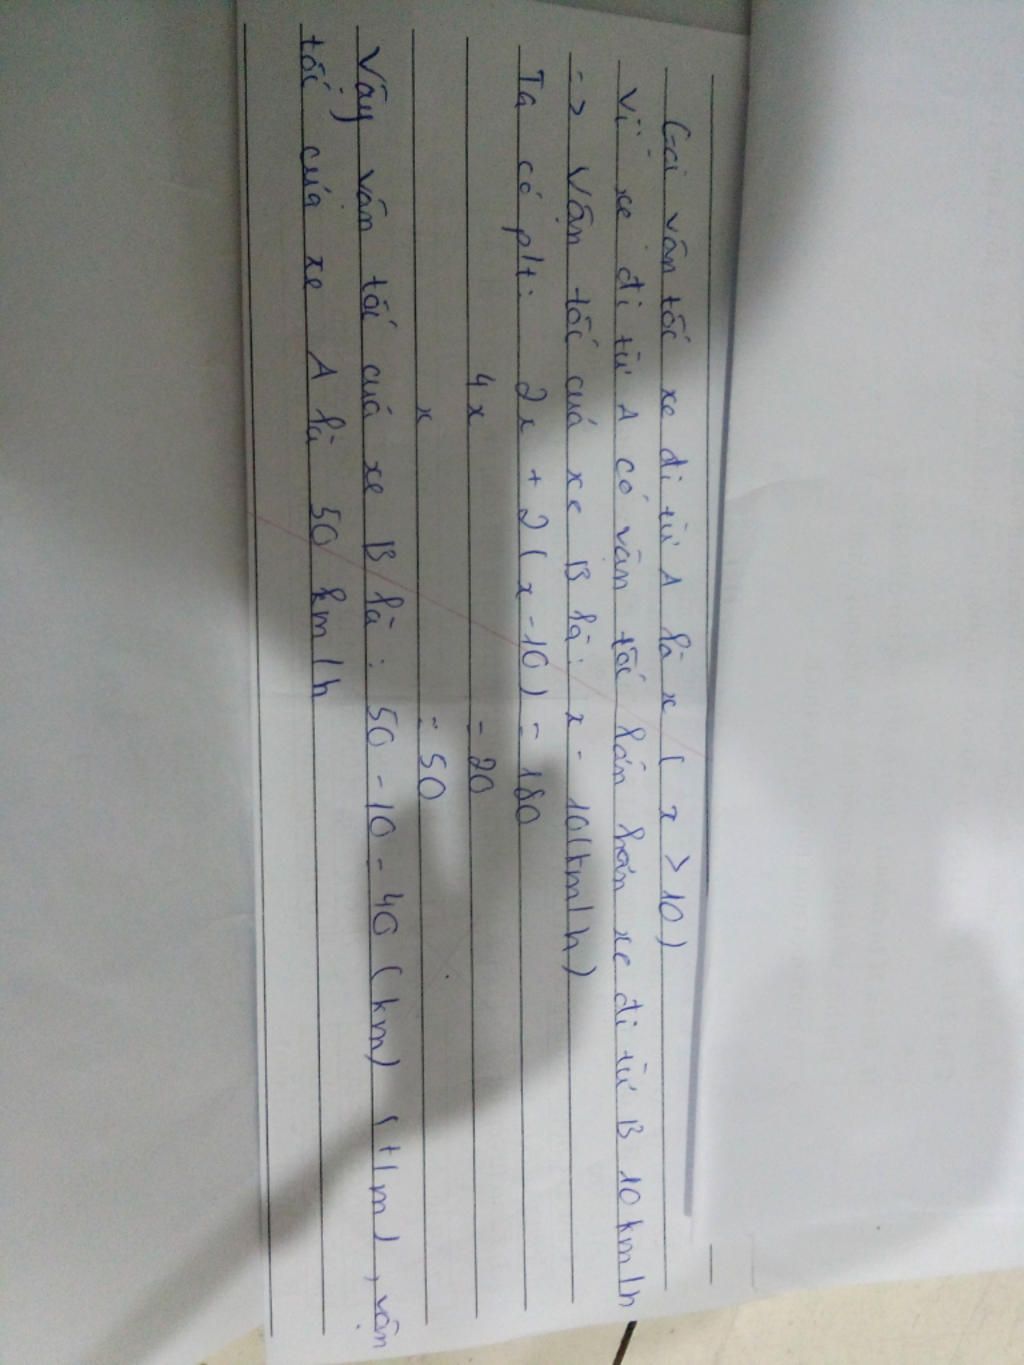 Gọi vân tốc xe đi từ A là x ( x > 10 )
Vì xe đi từ A có vân tốc lớn hơn xe đi từ B 10 km/h
-> Vận tốc cuả xe B là: x - 10(km/h)
Ta có p/t: 2x + 2( x -10) = 180
4x = 20
x = 50
Vậy vân tốc cuả xe B là : 50 - 10 = 40 (km) (t/m), vận
tốc cuả xe A là 50 km/h